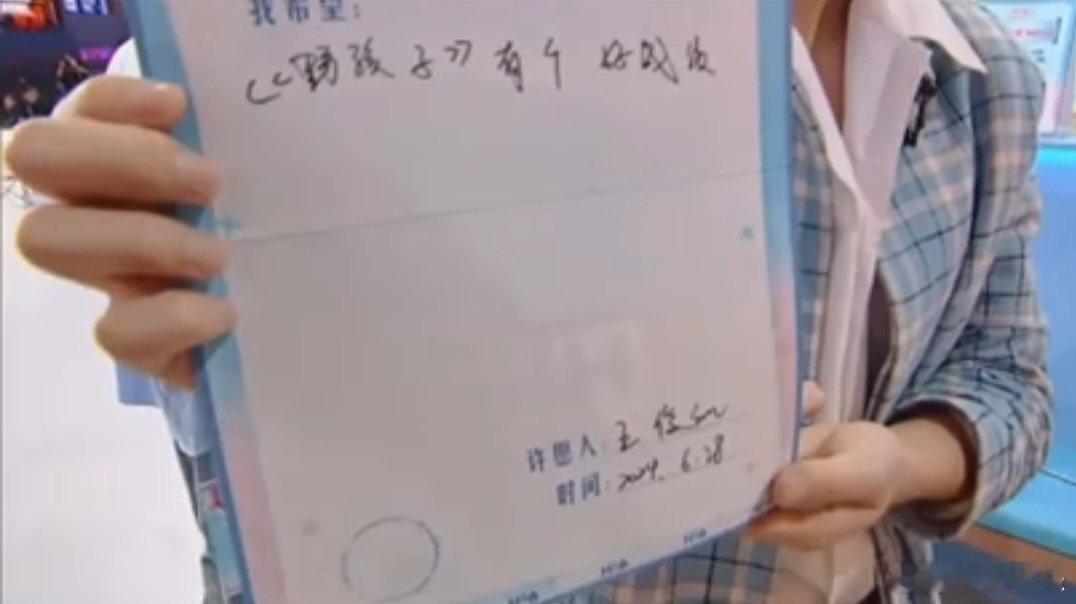 我希望：
《野孩子》有个好成绩
许愿人：王俊
时间：2024.6.28